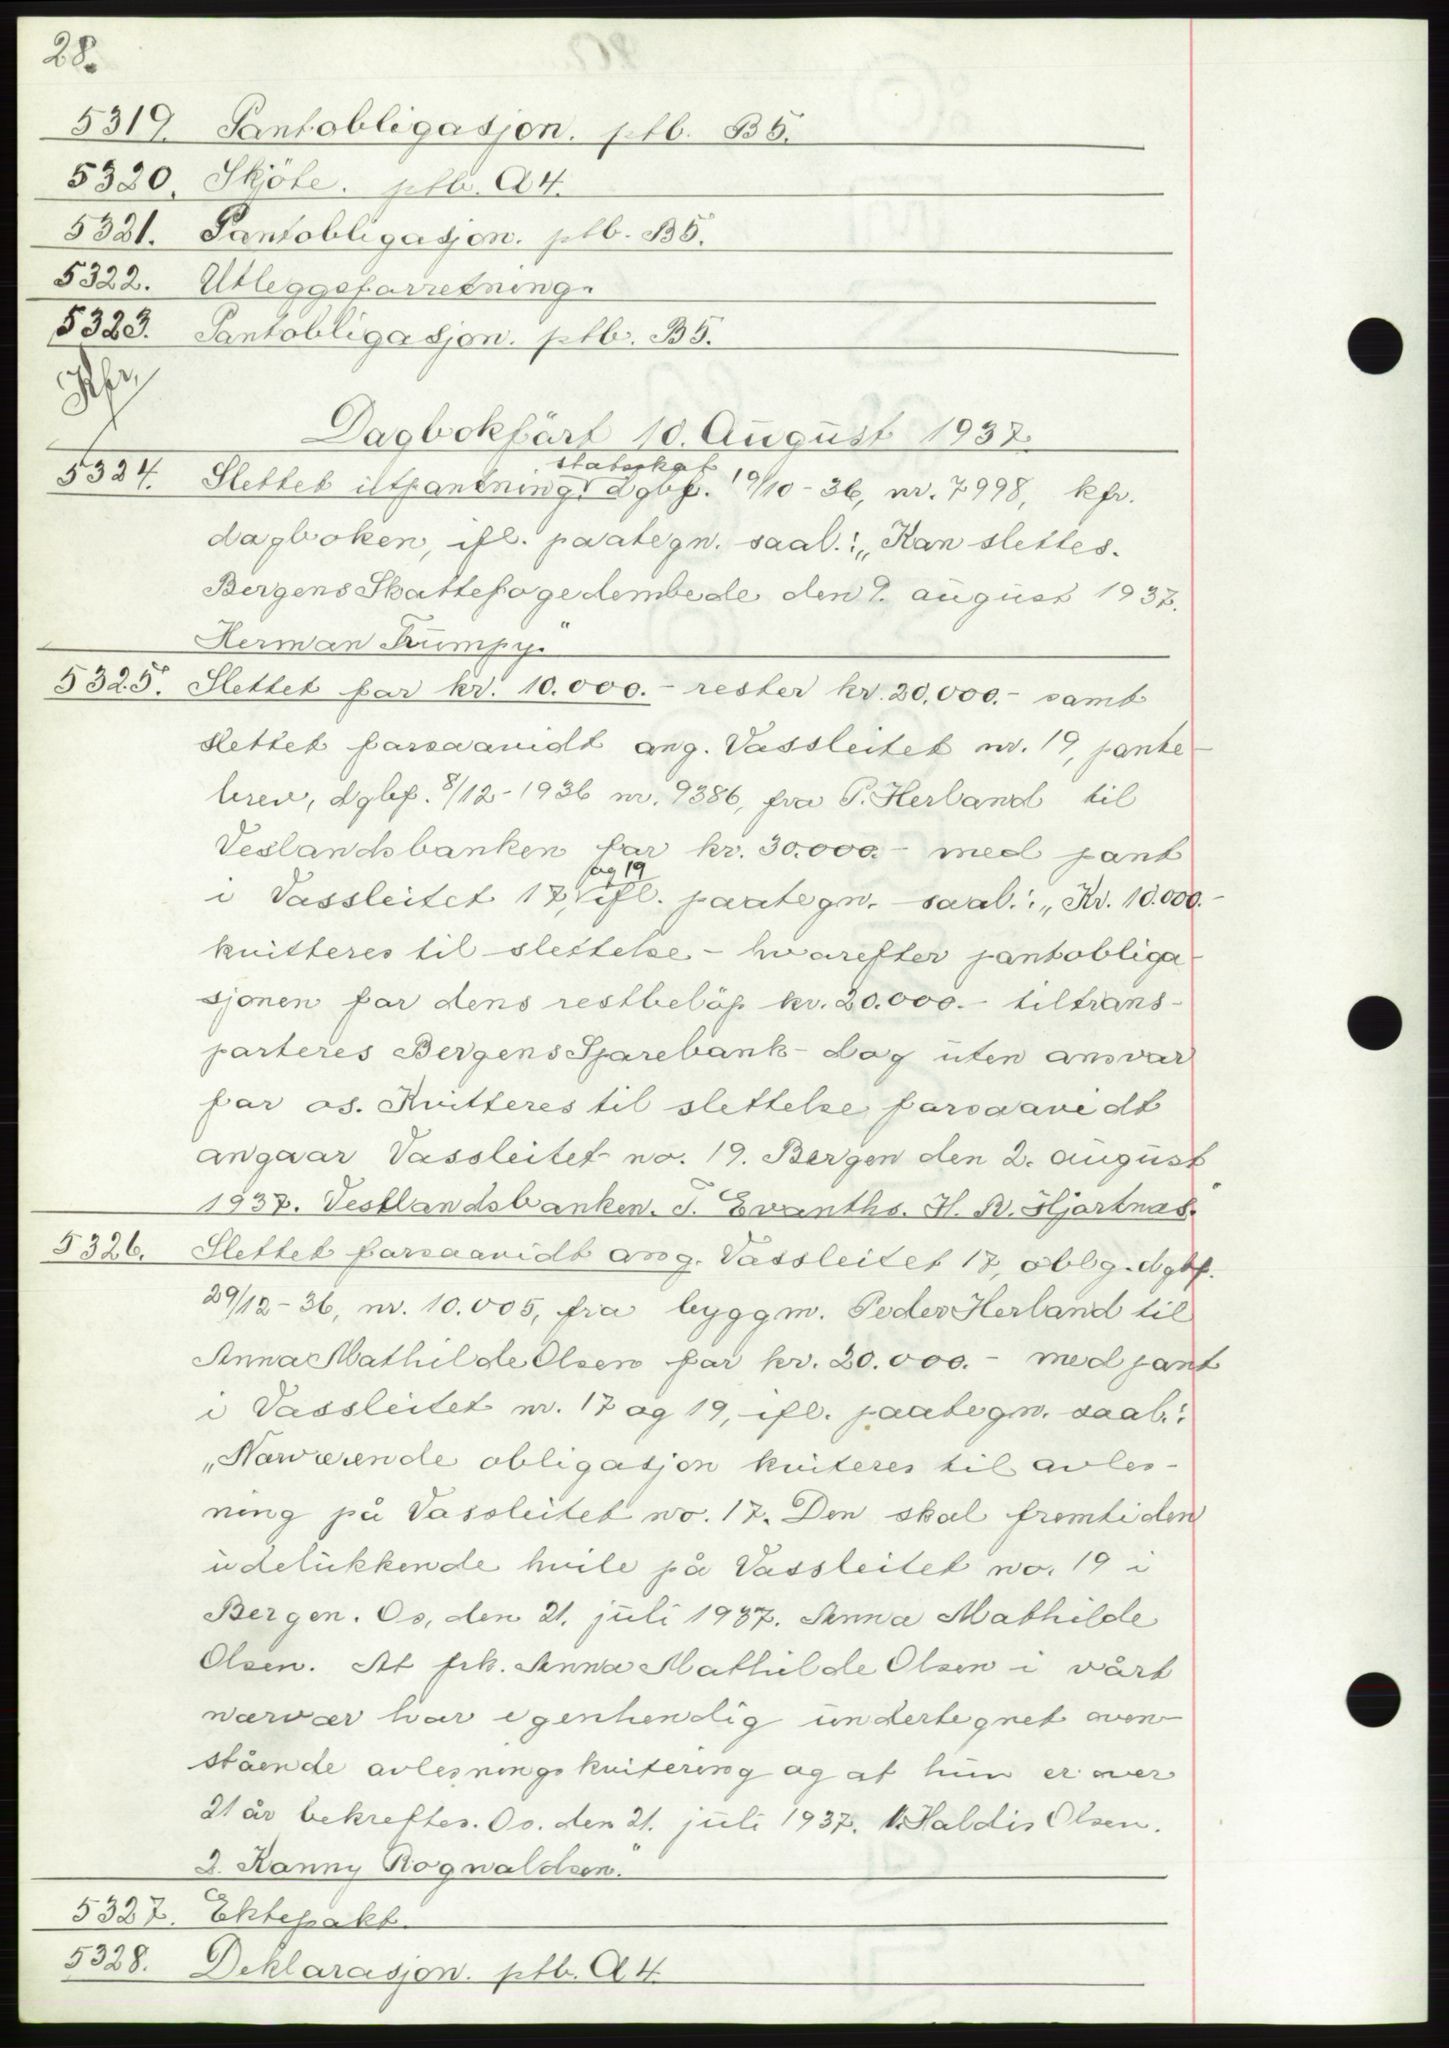 28.
5319. Pantobligasjon. ptb. B5.
5320. Skjöte. ptb. A4.
5321. Pantobligasjon. ptb. B5.
5322. Utleggsforretning.
5323. Pantobligasjon. ptb. B5.
Dagbokfört 10. August 1937.
statsskat
5324. Slettet utpantning, dgbf. 19/10-36, nr. 7998, kfr.
dagboken, ifl. paategn. saal.: „Kan slettes.
Bergens Skattefogedembede den 9. august 1937.
Herman Trumpy."
5325. Slettet for kr. 10.000.- rester kr. 20.000.- samt
slettet forsaavidt ang. Vassleitet nr. 19, pante-
brev, dgbf. 8/12-1936 nr. 9386, fra P. Herland til
Veslandsbanken for kr. 30.000.- med pant
og 19
i Vassleitet 17, ifl. paategn. saal.: „Kr. 10.000.-
kvitteres til slettelse - hvorefter pantobliga-
sjonen for dens restbelöp kr. 20.000.- tiltrans-
porteres Bergens Sparebank - dog uten ansvar
for os. Kvitteres til slettelse forsaavidt
angaar Vassleitet no. 19. Bergen den 2. august
1937. Vestlandsbanken. T. Evanths. H. R. Hjortnæs."
5326. Slettet forsaavidt ang. Vassleitet 17, oblg. dgbf.
29/12-36, nr. 10.005, fra byggm. Peder Herland til
Anna Mathilde Olsen for kr. 20.000.- med pant
i Vassleitet nr. 17 og 19, ifl. paategn. saal.:
„Nærværende obligasjon kviteres til avles-
ning på Vassleitet no. 17. Den skal fremtiden
udelukkende hvile på Vassleitet no. 19 i
Bergen. Os, den 21. juli 1937. Anna Mathilde
Olsen. At frk. Anna Mathilde Olsen i vårt
nærvær har egenhendig undertegnet oven-
stående avlesningskvitering og at hun er over
21 år bekreftes. Os. den 21. juli 1937. 1. Haldis Olsen.
2. Kanny Rognvaldsen."
5327. Ektepakt.
5328. Deklarasjon. ptb. A4.